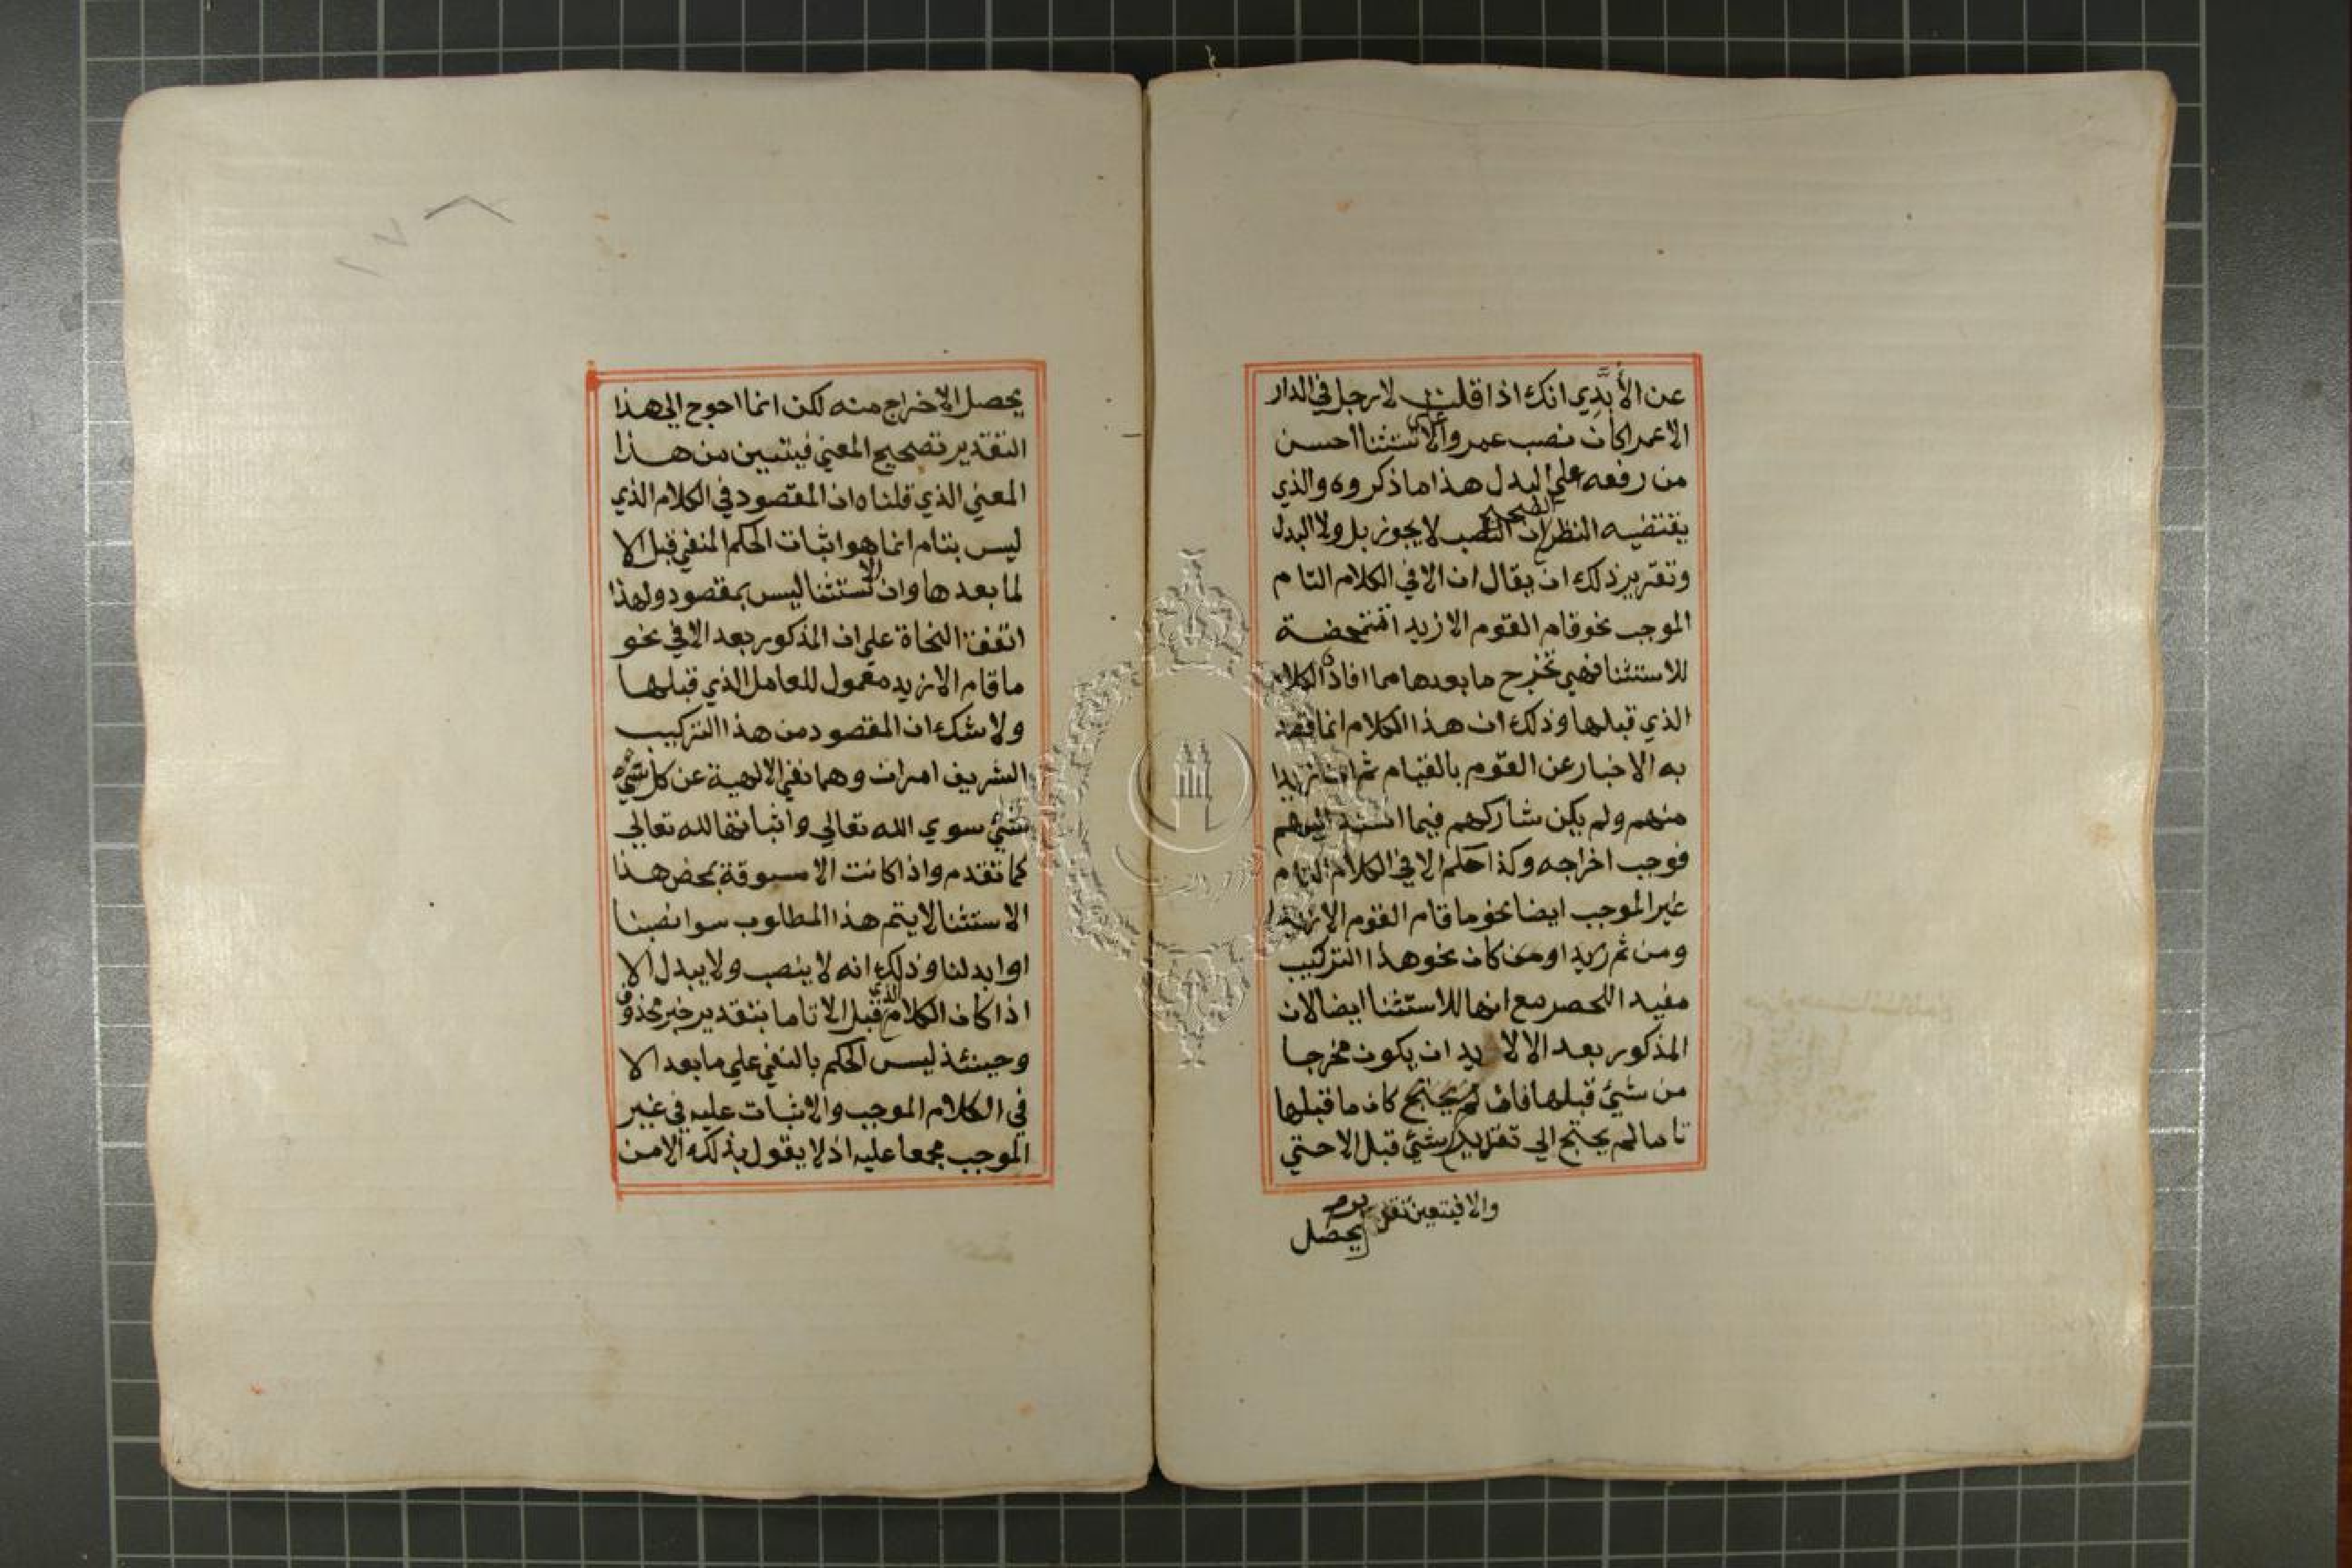 عن الأبَّدِي انك اذا قلت لا رجل في الدار
الا عمرا كان نصب عمرو على الاستثنا احسن
من رفعه علي البدل هذا ما ذكروه والذي
يقتضيه النظر الصحيح ان النصب لا يجوز بل ولا البدل
وتقرير ذلك ان يقال ان الا في الكلام التام
الموجب نحو قام القوم الا زيدا متمحضة
للاستثنا فهي تخرج ما بعدها مما افاده الكلام
الذي قبلها وذلك ان هذا الكلام انما قصد
به الاخبار عن القوم بالقيام ثم ان زيدا
منهم ولم يكن شاركهم فيما اسند اليهم
فوجب اخراجه وكذا حكم الا في الكلام التام
غير الموجب ايضا نحو ما قام القوم الا زيدا
ومن ثم كان نحو هذا التركيب
مفيد اللحصر مع انها للاستثنا ايضا لان
المذكور بعد الا لا بد ان يكون مخرجا
من شيئ قبلها فان كان ما قبلها
تاما لم يحتج الي تقدير شيئ قبل الا حتي
والا فيتعين تقديره
يحصل
يحصل الاخراج منه لكن انما احوج الي هذا
التقدير تصحيح المعني فيتبين من هذا
المعني الذي قلناه ان المقصود في الكلام الذي
ليس بتام انما هو اثبات الحكم المنفي قبل الا
لما بعدها وان الاستثنا ليس بمقصود ولهذا
اتفقت النحاة علي ان المذكور بعد الا في نحو
ما قام الا زيد معمول للعامل الذي قبلها
ولا شك ان المقصود من هذا التركيب
الشريف امران وهما نفي الالهية عن كل شيئ
سوي الله تعالي واثباتها لله تعالي
كما تقدم واذا كانت الا مسوقة لمحض هذا
الاستثنا لا يتم هذا المطلوب سوا نصبنا
او ابدلنا وذلك انه لا ينصب ولا يبدل الا
اذا كان الكلام الذي قبل الا تاما بتقدير خبر محذوف
وحينئذ ليس الحكم بالنفي علي ما بعد الا
في الكلام الموجب والاثبات عليه في غير
الموجب مجمعا عليه اذ لا يقول بذلك الا من